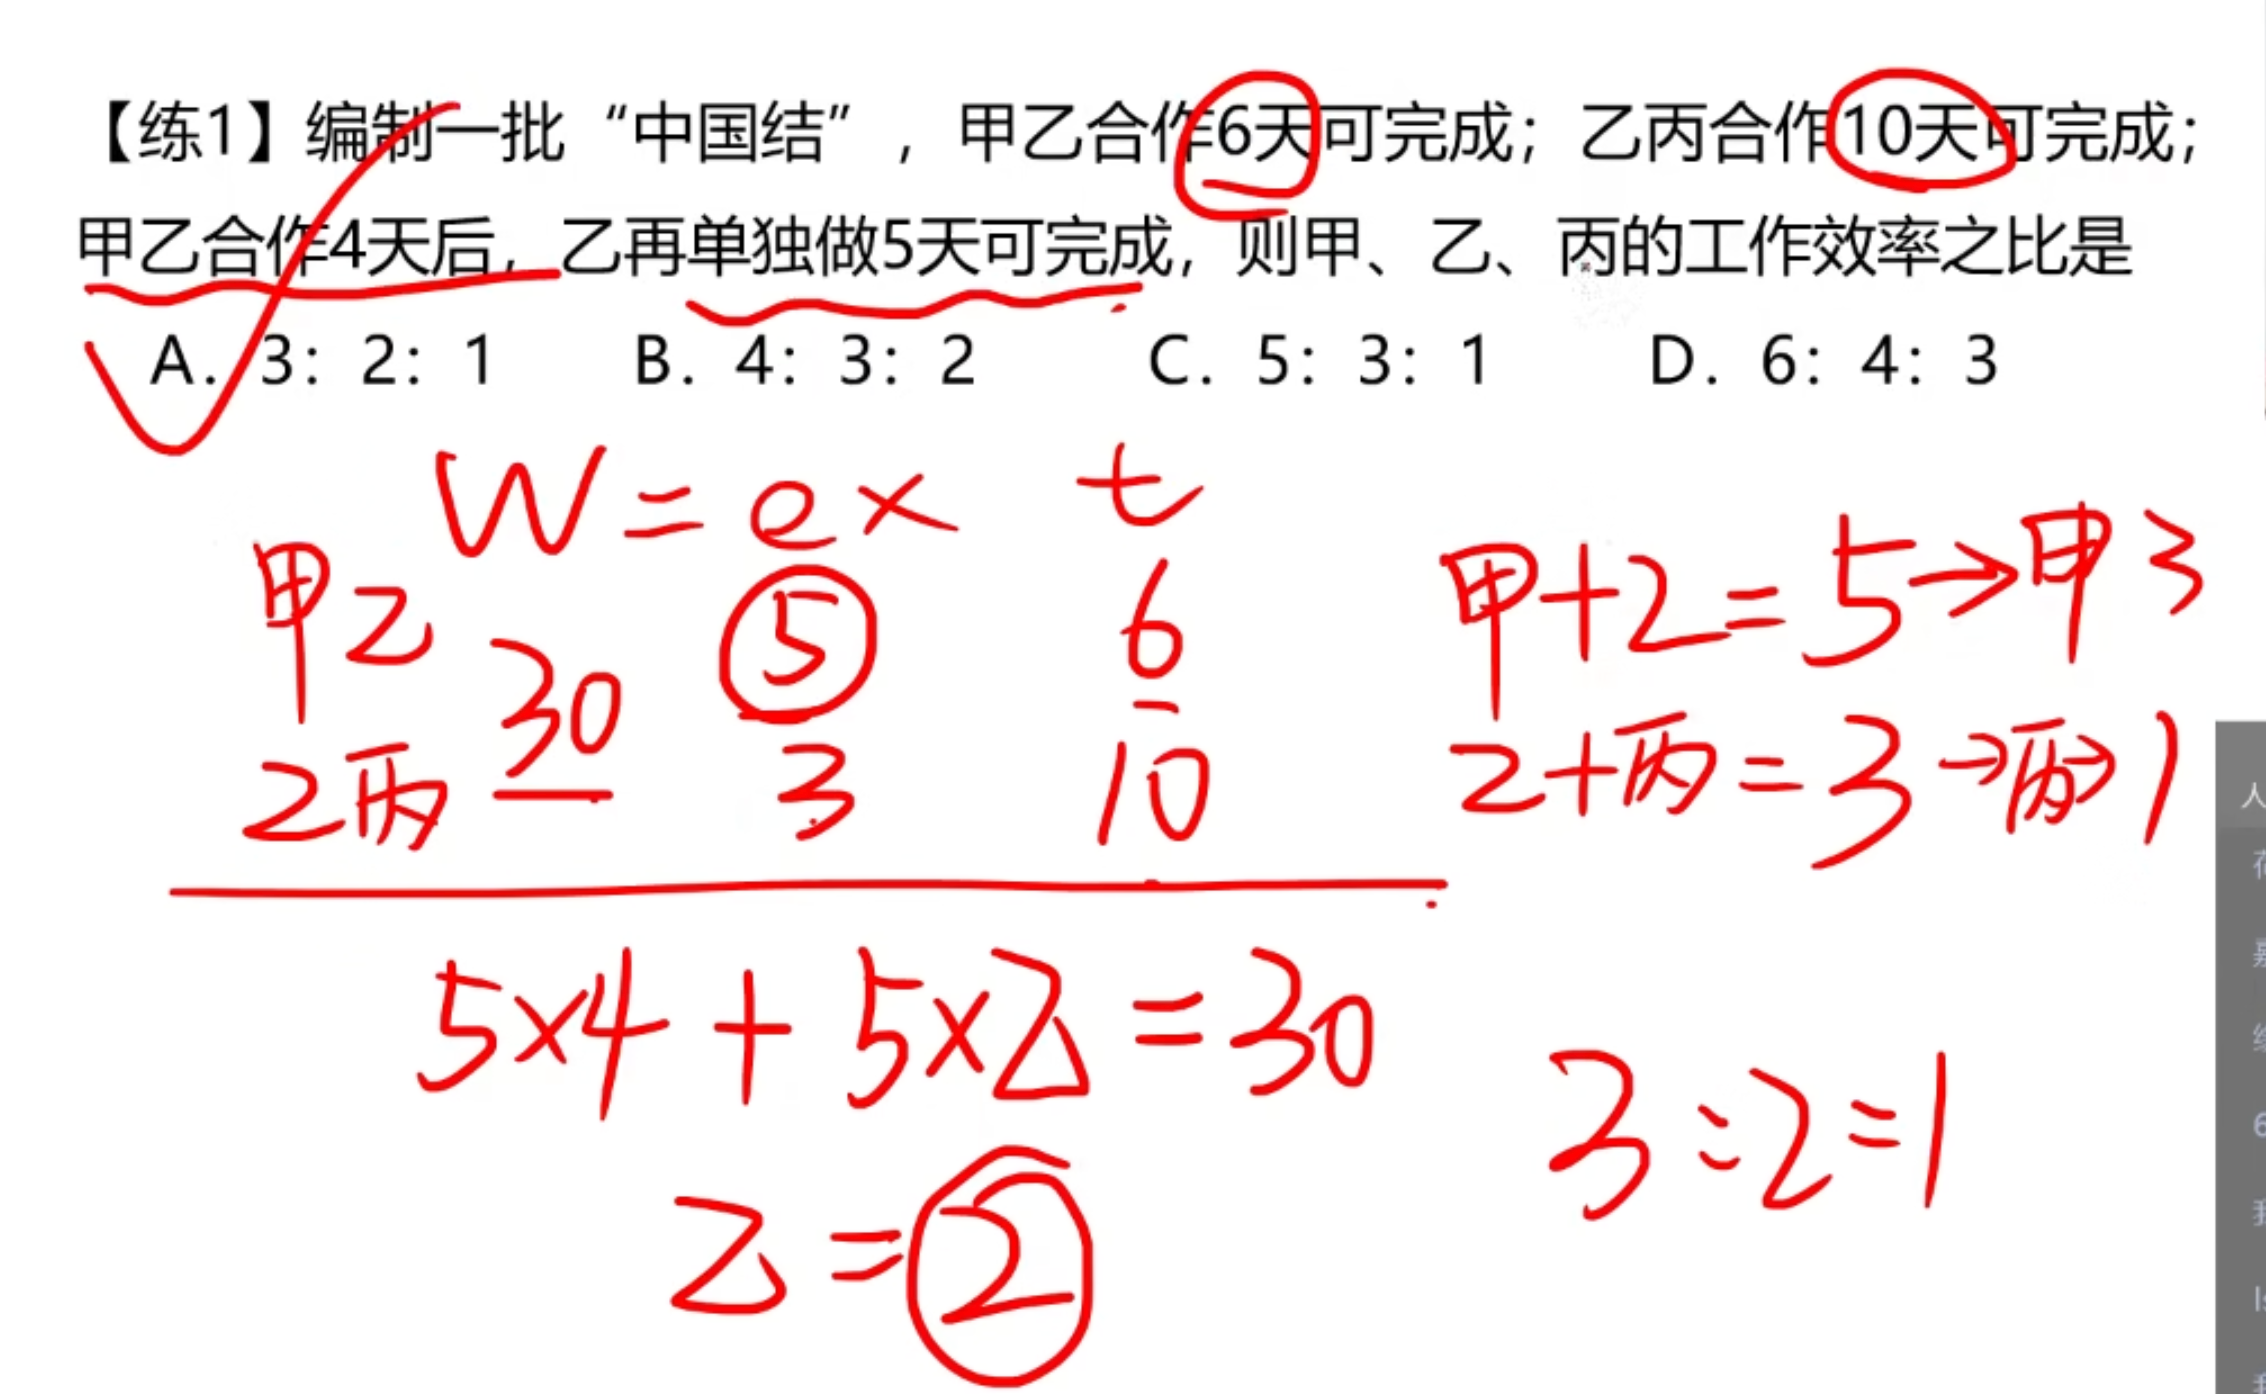 【练1】编制一批“中国结”，甲乙合作6天可完成；乙丙合作10天可完成；
甲乙合作4天后，乙再单独做5天可完成，则甲、乙、丙的工作效率之比是
A. 3：2：1 B. 4：3：2 C. 5：3：1 D. 6：4：3
W = e × t
甲乙 30 5 6
乙丙 3 10
甲+2=5→甲3
2+丙=3→丙→1
5×4+5×乙=30
乙=2
3:2:1
人
6